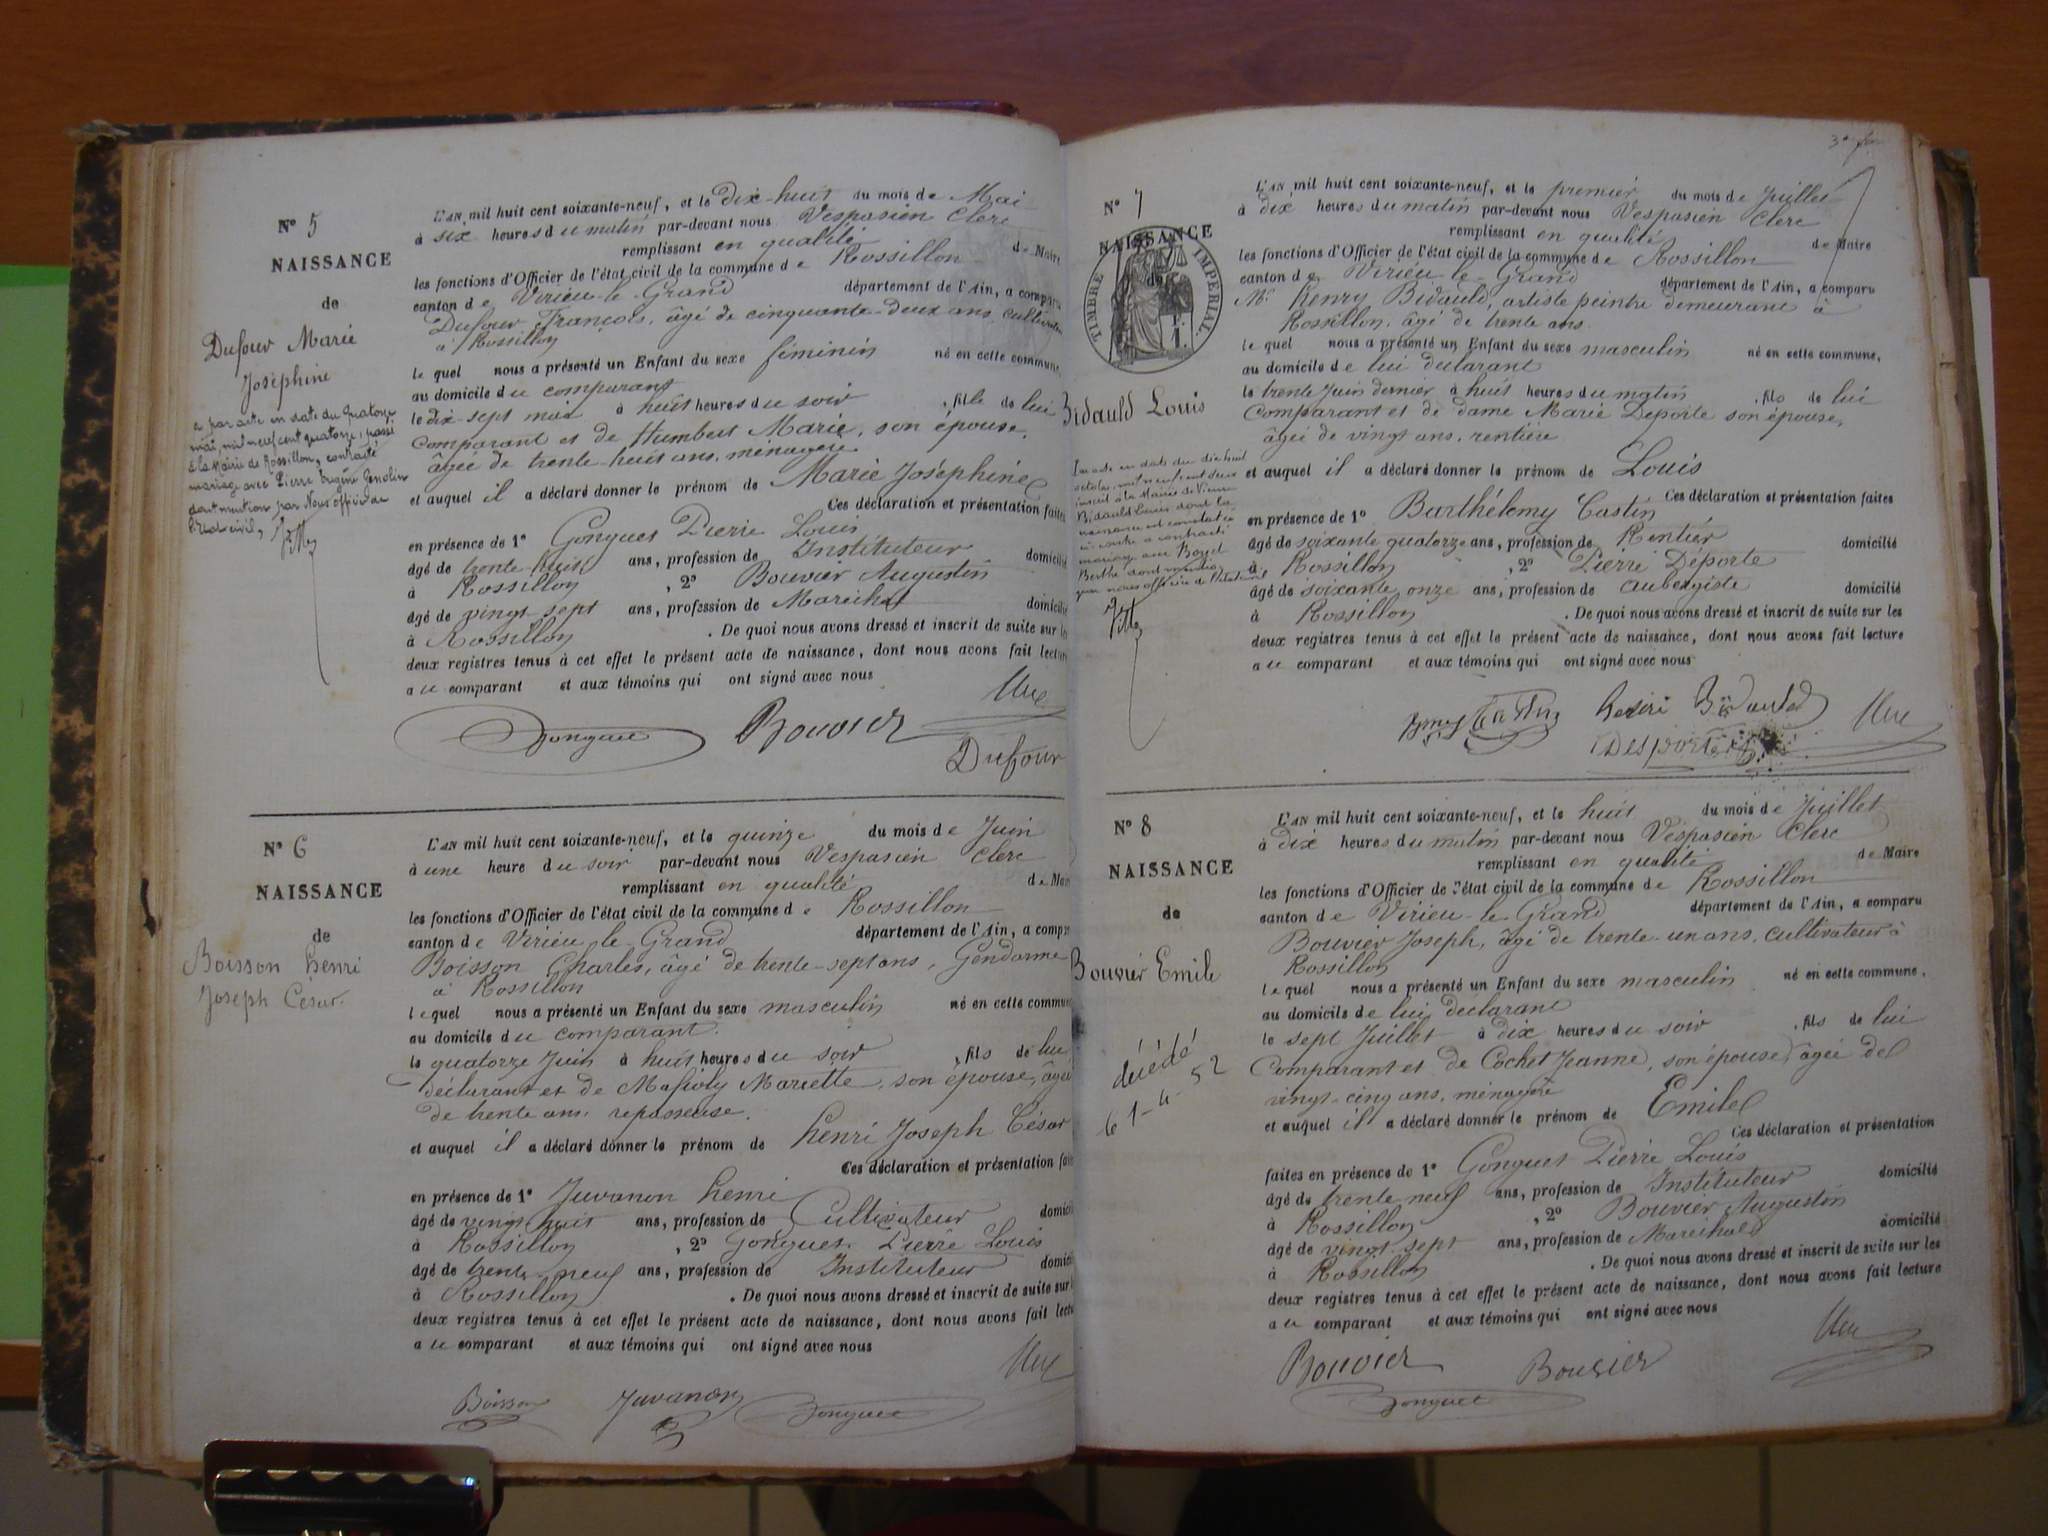 N° 5
NAISSANCE
de
Dufour Marie
Joséphine
par acte en date du quatorze
mai, mil neuf cent quatorze, passé
à la Mairie de Rossillon, contracté
mariage avec Pierre Eugène
dont mention par Nous officier de
l'Etat civil,
L'AN mil huit cent soixante-neuf, et le dix-huit du mois de Mai
à six heures du matin par-devant nous Vespasien Clerc
remplissant en qualité de Maire
les fonctions d'Officier de l'état civil de la commune de Rossillon
canton de Virieu-le-Grand département de l'Ain, a comparu
Dufour François, âgé de cinquante-deux ans, cultivateur
à Rossillon
le quel nous a présenté un Enfant du sexe féminin né en cette commune,
au domicile du comparant
le dix-sept mai à huit heures du soir, fille de lui
comparant et de Humbert Marie, son épouse,
âgée de trente-huit ans, ménagère
et auquel il a déclaré donner le prénom de Marie Joséphine
Ces déclaration et présentation faites
en présence de 1° Gonguet Pierre Louis
âgé de trente-huit ans, profession de Instituteur domicilié
à Rossillon, 2° Bouvier Augustin
âgé de vingt-sept ans, profession de Maréchal domicilié
à Rossillon. De quoi nous avons dressé et inscrit de suite sur les
deux registres tenus à cet effet le présent acte de naissance, dont nous avons fait lecture
au comparant et aux témoins qui ont signé avec nous
Gonguet Bouvier Clerc
Dufour
N° 6
NAISSANCE
de
Boisson henri
Joseph César.
L'AN mil huit cent soixante-neuf, et le quinze du mois de Juin
à une heure du soir par-devant nous Vespasien Clerc
remplissant en qualité de Maire
les fonctions d'Officier de l'état civil de la commune de Rossillon
canton de Virieu-le-Grand département de l'Ain, a comparu
Boisson Charles, âgé de trente-sept ans, Gendarme
à Rossillon
lequel nous a présenté un Enfant du sexe masculin né en cette commune
au domicile du comparant.
le quatorze Juin à huit heures du soir, fils de lui
déclarant et de Mariette, son épouse, âgée
de trente ans, repasseuse.
et auquel il a déclaré donner le prénom de henri Joseph César
Ces déclaration et présentation faites
en présence de 1° Juvanon henri
âgé de vingt-huit ans, profession de Cultivateur domicilié
à Rossillon, 2° Gonguet Pierre Louis
âgé de trente-neuf ans, profession de Instituteur domicilié
à Rossillon. De quoi nous avons dressé et inscrit de suite sur les
deux registres tenus à cet effet le présent acte de naissance, dont nous avons fait lecture
au comparant et aux témoins qui ont signé avec nous
Clerc
Boisson Juvanon Gonguet
N° 7
NAISSANCE
de
TIMBRE IMPERIAL.
1 F.
Bidauld Louis
Par acte en date du dix huit
octobre mil neuf cent
inscrit à la Mairie de Vienne
Bidauld Louis dont la
naissance est constatée
ci-contre a contracté
mariage avec Boyet
Berthe dont mention
par nous officier de l'état civil
L'AN mil huit cent soixante-neuf, et le premier du mois de Juillet
à dix heures du matin par-devant nous Vespasien Clerc
remplissant en qualité de Maire
les fonctions d'Officier de l'état civil de la commune de Rossillon
canton de Virieu-le-Grand département de l'Ain, a comparu
Mr Henry Bidauld, artiste peintre demeurant à
Rossillon, âgé de trente ans.
le quel nous a présenté un Enfant du sexe masculin né en cette commune,
au domicile de lui déclarant
le trente Juin dernier à huit heures du matin, fils de lui
comparant et de dame Marie Deporte son épouse,
âgée de vingt ans, rentière
et auquel il a déclaré donner le prénom de Louis
Ces déclaration et présentation faites
en présence de 1° Barthélemy Castin
âgé de soixante quatorze ans, profession de Rentier domicilié
à Rossillon, 2° Pierre Déporte
âgé de soixante onze ans, profession de aubergiste domicilié
à Rossillon. De quoi nous avons dressé et inscrit de suite sur les
deux registres tenus à cet effet le présent acte de naissance, dont nous avons fait lecture
au comparant et aux témoins qui ont signé avec nous
henri Bidauld Clerc
Desportes
N° 8
NAISSANCE
de
Bouvier Emile
décédé
le 1-4-52
L'AN mil huit cent soixante-neuf, et le huit du mois de Juillet
à dix heures du matin par-devant nous Vespasien Clerc
remplissant en qualité de Maire
les fonctions d'Officier de l'état civil de la commune de Rossillon
canton de Virieu-le-Grand département de l'Ain, a comparu
Bouvier Joseph, âgé de trente-un ans, cultivateur à
Rossillon
lequel nous a présenté un Enfant du sexe masculin né en cette commune,
au domicile de lui déclarant
le sept Juillet à dix heures du soir, fils de lui
comparant et de Cochet Jeanne, son épouse, âgée de
vingt-cinq ans, ménagère
et auquel il a déclaré donner le prénom de Emile
Ces déclaration et présentation
faites en présence de 1° Gonguet Pierre Louis
âgé de trente neuf ans, profession de Instituteur domicilié
à Rossillon, 2° Bouvier Augustin
âgé de vingt-sept ans, profession de Maréchal domicilié
à Rossillon. De quoi nous avons dressé et inscrit de suite sur les
deux registres tenus à cet effet le présent acte de naissance, dont nous avons fait lecture
au comparant et aux témoins qui ont signé avec nous
Clerc
Bouvier Bouvier
Gonguet